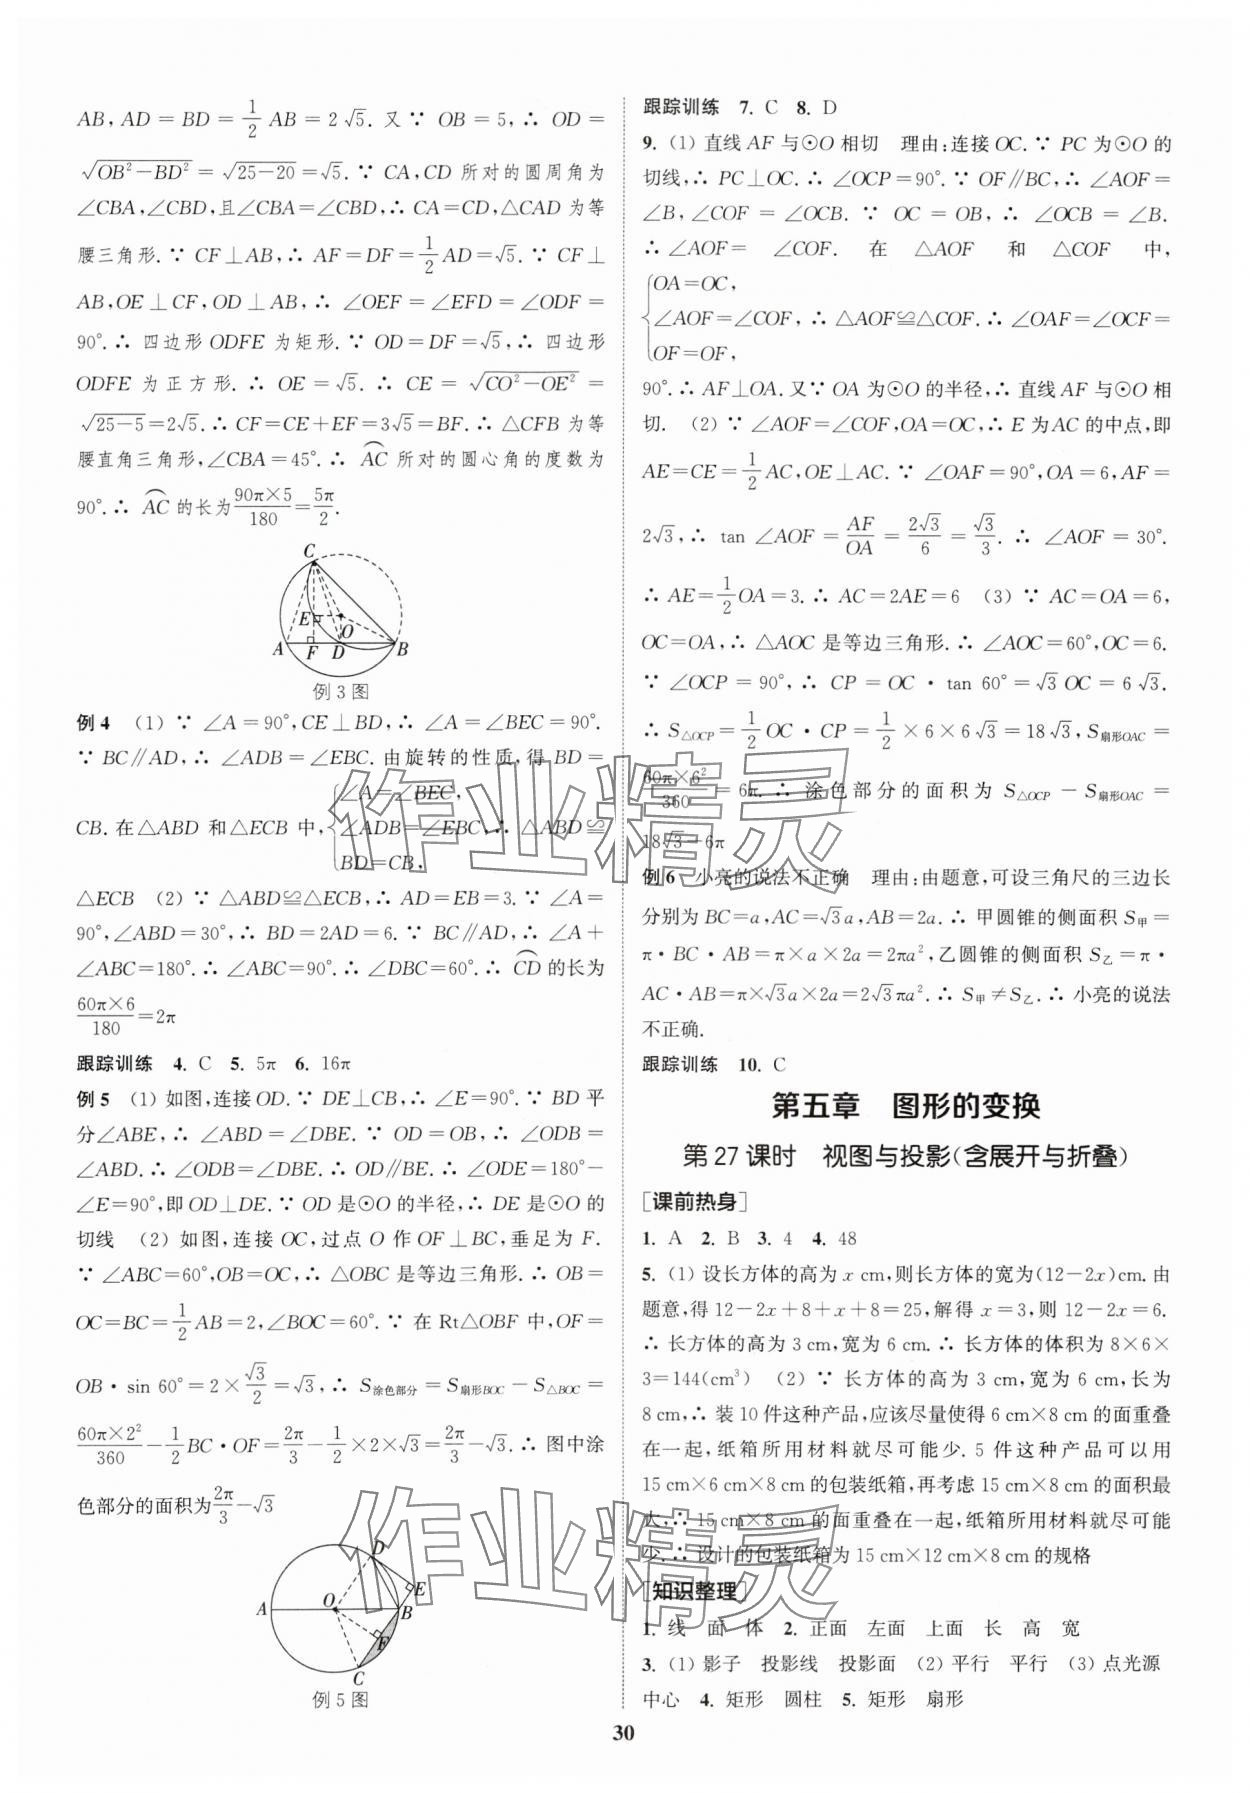 AB,AD=BD=1/2AB=2√5.又∵OB=5,∴OD=
√(OB²-BD²)=√(25-20)=√5.∵CA,CD所对的圆周角为
∠CBA,∠CBD,且∠CBA=∠CBD,∴CA=CD,△CAD为等
腰三角形.∵CF⊥AB,∴AF=DF=1/2AD=√5.∵CF⊥
AB,OE⊥CF,OD⊥AB,∴∠OEF=∠EFD=∠ODF=
90°.∴四边形ODFE为矩形.∵OD=DF=√5,∴四边形
ODFE为正方形.∴OE=√5.∴CE=√(CO²-OE²)=
√(25-5)=2√5.∴CF=CE+EF=3√5=BF.∴△CFB为等
腰直角三角形,∠CBA=45°.∴⌒AC所对的圆心角的度数为
90°.∴⌒AC的长为90π×5/180=5π/2.
C
E O
A F D B
例3图
例4 (1)∵∠A=90°,CE⊥BD,∴∠A=∠BEC=90°.
∵BC∥AD,∴∠ADB=∠EBC.由旋转的性质,得BD=
CB.在△ABD和△ECB中,{∠A=∠BEC,
∠ADB=∠EBC,∴△ABD≌
BD=CB,
△ECB (2)∵△ABD≌△ECB,∴AD=EB=3.∵∠A=
90°,∠ABD=30°,∴BD=2AD=6.∵BC∥AD,∴∠A+
∠ABC=180°.∴∠ABC=90°.∴∠DBC=60°.∴⌒CD的长为
60π×6/180=2π
跟踪训练 4. C 5. 5π 6. 16π
例5 (1)如图,连接OD.∵DE⊥CB,∴∠E=90°.∵BD平
分∠ABE,∴∠ABD=∠DBE.∵OD=OB,∴∠ODB=
∠ABD.∴∠ODB=∠DBE.∴OD∥BE.∴∠ODE=180°-
∠E=90°,即OD⊥DE.∵OD是⊙O的半径,∴DE是⊙O的
切线 (2)如图,连接OC,过点O作OF⊥BC,垂足为F.
∵∠ABC=60°,OB=OC,∴△OBC是等边三角形.∴OB=
OC=BC=1/2AB=2,∠BOC=60°.∵在Rt△OBF中,OF=
OB·sin 60°=2×√3/2=√3,∴S涂色部分=S扇形BOC-S△BOC=
60π×2²/360-1/2BC·OF=2π/3-1/2×2×√3=2π/3-√3.∴图中涂
色部分的面积为2π/3-√3
D
E
A O B
F
C
例5图
跟踪训练 7. C 8. D
9. (1)直线AF与⊙O相切 理由:连接OC.∵PC为⊙O的
切线,∴PC⊥OC.∴∠OCP=90°.∵OF∥BC,∴∠AOF=
∠B,∠COF=∠OCB.∵OC=OB,∴∠OCB=∠B.
∴∠AOF=∠COF.在△AOF和△COF中,
{OA=OC,
∠AOF=∠COF,∴△AOF≌△COF.∴∠OAF=∠OCF=
OF=OF,
90°.∴AF⊥OA.又∵OA为⊙O的半径,∴直线AF与⊙O相
切. (2)∵∠AOF=∠COF,OA=OC,∴E为AC的中点,即
AE=CE=1/2AC,OE⊥AC.∵∠OAF=90°,OA=6,AF=
2√3,∴tan∠AOF=AF/OA=2√3/6=√3/3.∴∠AOF=30°.
∴AE=1/2OA=3.∴AC=2AE=6 (3)∵AC=OA=6,
OC=OA,∴△AOC是等边三角形.∴∠AOC=60°,OC=6.
∵∠OCP=90°,∴CP=OC·tan 60°=√3OC=6√3.
∴S△OCP=1/2OC·CP=1/2×6×6√3=18√3,S扇形OAC=
60π×6²/360=6π.∴涂色部分的面积为S△OCP-S扇形OAC=
18√3-6π
例6 小亮的说法不正确 理由:由题意,可设三角尺的三边长
分别为BC=a,AC=√3a,AB=2a.∴甲圆锥的侧面积S甲=
π·BC·AB=π×a×2a=2πa²,乙圆锥的侧面积S乙=π·
AC·AB=π×√3a×2a=2√3πa².∴S甲≠S乙.∴小亮的说法
不正确.
跟踪训练 10. C
第五章 图形的变换
第27课时 视图与投影(含展开与折叠)
[课前热身]
1. A 2. B 3. 4 4. 48
5. (1)设长方体的高为x cm,则长方体的宽为(12-2x)cm.由
题意,得12-2x+8+x+8=25,解得x=3,则12-2x=6.
∴长方体的高为3 cm,宽为6 cm.∴长方体的体积为8×6×
3=144(cm³) (2)∵长方体的高为3 cm,宽为6 cm,长为
8 cm,∴装10件这种产品,应该尽量使得6 cm×8 cm的面重叠
在一起,纸箱所用材料就尽可能少.5件这种产品可以用
15 cm×6 cm×8 cm的包装纸箱,再考虑15 cm×8 cm的面积最
大,∴15 cm×8 cm的面重叠在一起,纸箱所用材料就尽可能
少.∴设计的包装纸箱为15 cm×12 cm×8 cm的规格
[知识整理]
1. 线 面 体 2. 正面 左面 上面 长 高 宽
3. (1)影子 投影线 投影面 (2)平行 平行 (3)点光源
中心 4. 矩形 圆柱 5. 矩形 扇形
30
作业精灵
作业精灵